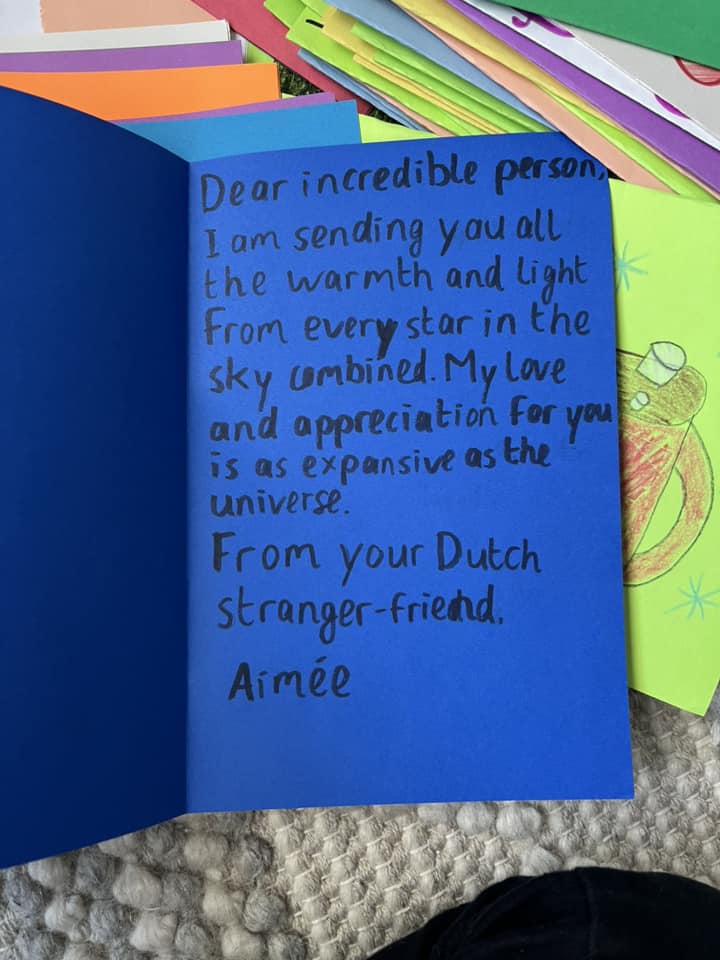 Dear incredible person,
I am sending you all
the warmth and light
from every star in the
sky combined. My love
and appreciation for you
is as expansive as the
universe.
From your Dutch
stranger-friend.
Aimée